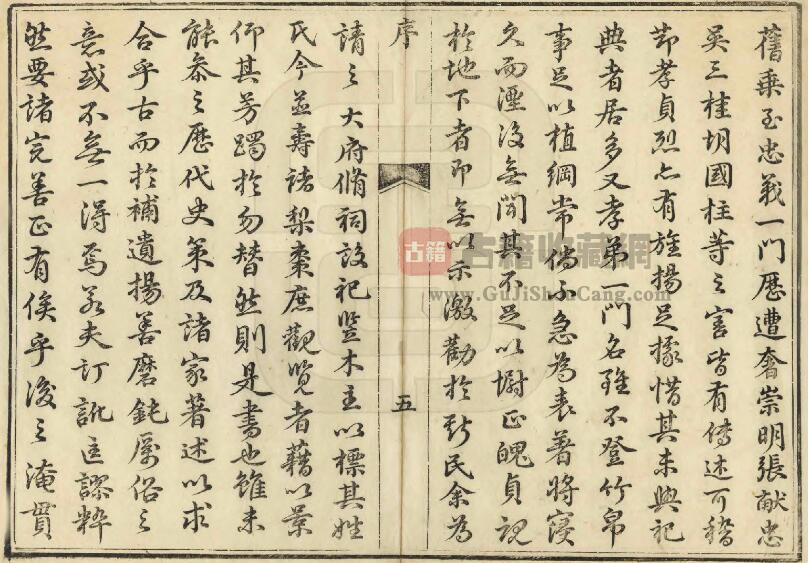 舊乘至忠義一門歷遭奢崇明張献忠
吳三桂胡國柱等之害皆有傳述可稽
節孝貞烈亦有旌揚足據惜其未與祀
典者居多又孝弟一門名雖不登竹帛
事足以植綱常倘不急為表著將寖
久而湮沒無聞其不足以慰正魄貞魂
於地下者即無以示激勸於斯民余為
序
五
請之大府脩祠設祀豎木主以標其姓
氏今並壽諸梨棗庶觀覽者藉以景
仰其芳躅於勿替然則是書也雖未
能參之歷代史策及諸家著述以求
合乎古而於補遺揚善磨鈍厲俗之
意或不無一得焉若夫訂訛匡謬粹
然要諸完善正有俟乎後之淹貫
古籍
古籍收藏網
www.GuJiShouCang.com